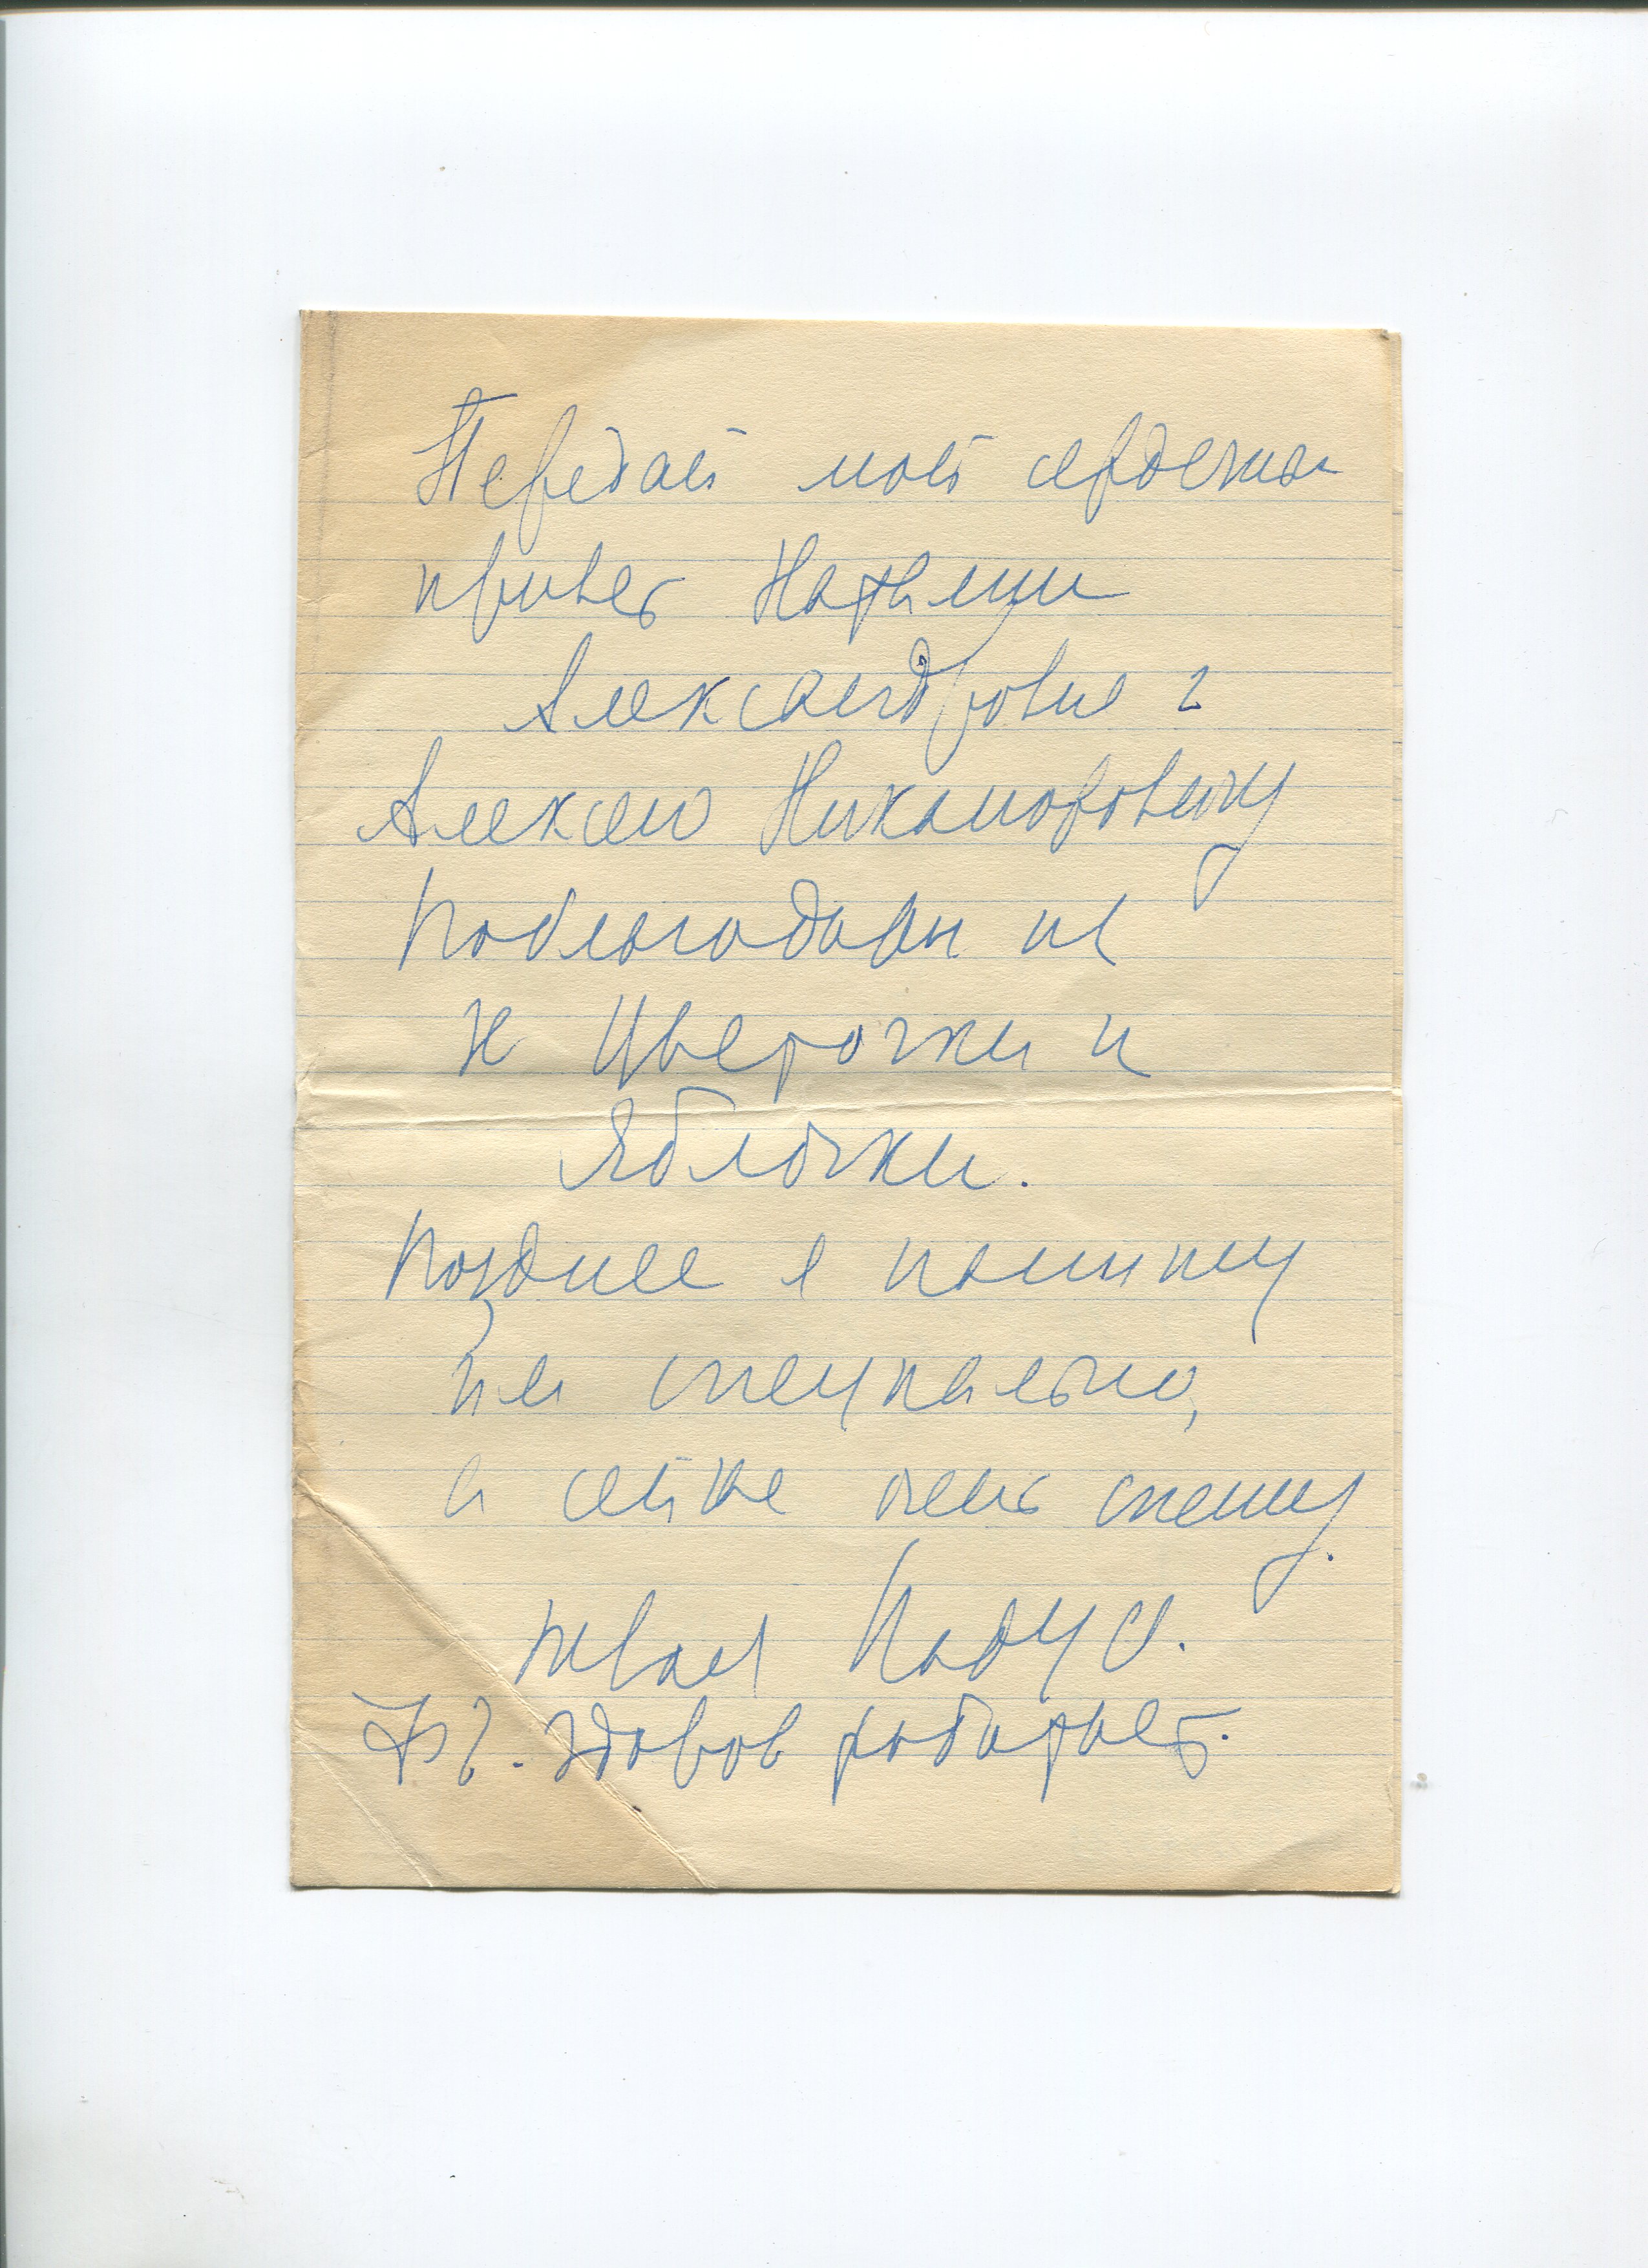 Передай мой сердечны
привет Наталии
Александровне и
Алексею Никаноровичу
Поблагодари их
за Цветочки и
Яблочки.
Позднее я напишу
им специально,
а сейчас очень спешу.
твоя Надуся.
здоров работает.